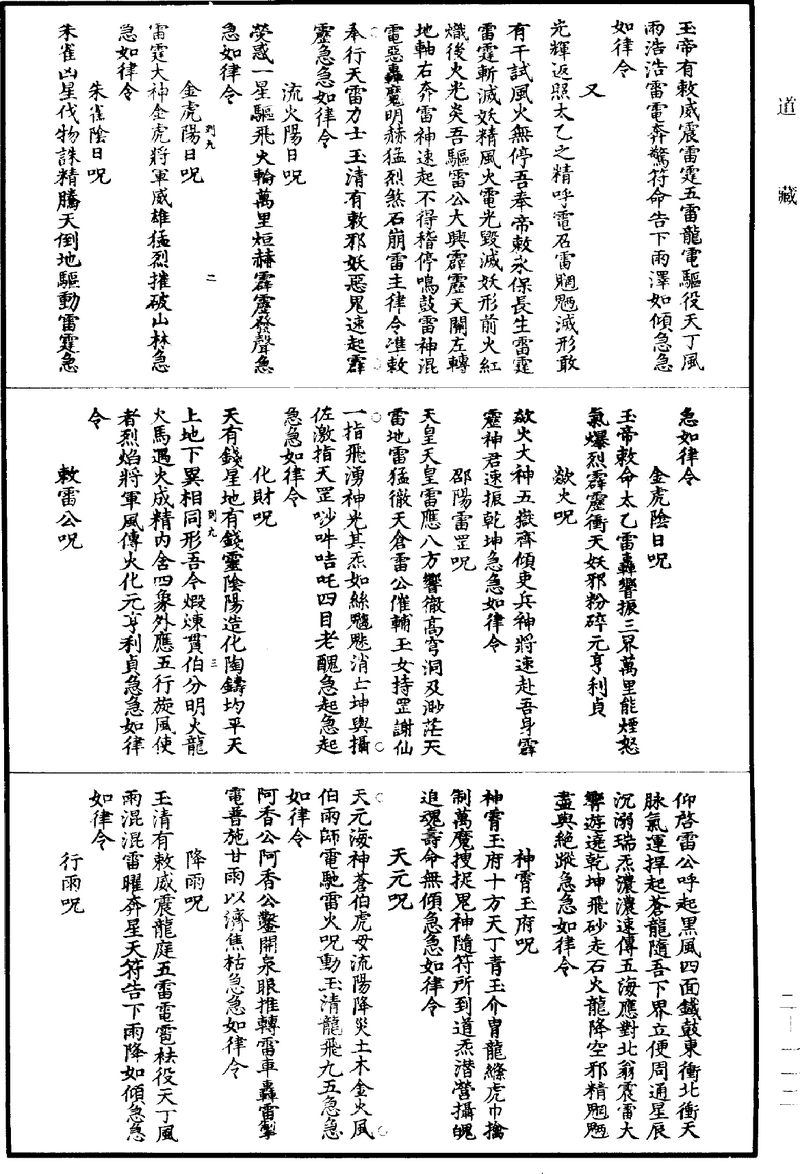 道藏
玉帝有敕威震雷霆五雷龍電驅役天丁風
雨浩浩雷電奔驚符命告下雨澤如傾急急
如律令
又
光輝返照太乙之精呼電召雷䰡魎滅形敢
有干試風火無停吾奉帝敕永保長生雷霆
雷霆斬滅妖精風火電光毀滅妖形前火紅
熾後火光炎吾驅雷公大興霹靂天關左轉
地軸右奔雷神速起不得稽停鳴鼓雷神混
電惡轟魔明赫猛烈煞石崩雷主律令準敕
奉行天雷力士玉清有敕邪妖惡鬼速起霹
靂急急如律令
流火陽日呪
熒惑一星驅飛火輪萬里烜赫霹靂發聲急
急如律令
金虎陽日呪
雷霆大神金虎將軍威雄猛烈摧破山林急
急如律令
朱雀陰日呪
朱雀凶星伐物誅精騰天倒地驅動雷霆急
急如律令
金虎陰日呪
玉帝敕命太乙雷轟響振三界萬里能煙怒
氣爆烈霹靂衝天妖邪粉碎元亨利貞
欻火呪
欻火大神五嶽齊傾吏兵神將速赴吾身霹
靂神君速振乾坤急急如律令
邵陽雷罡呪
天皇天皇雷應八方響徹高穹洞及渺茫天
雷地雷猛徹天倉雷公催輔玉女持罡謝仙
一指飛湧神光其炁如絲魑魅消亡坤輿攝
佐激指天罡吵吽咭吒四目老醜急起急起
急急如律令
化財呪
天有錢星地有錢靈陰陽造化陶鑄均平天
上地下異相同形吾今煆煉貫伯分明火龍
火馬遇火成精內含四象外應五行旋風使
者烈焰將軍風傳火化元亨利貞急急如律
令
敕雷公呪
仰啓雷公呼起黑風四面鐵鼓東衝北衝天
脉氣運捍起蒼龍隨吾下界立便周通星辰
沉溺瑞炁濃濃速傳五海應對北翁震雷大
響遊遶乾坤飛砂走石火龍降空邪精魍魎
盡與絕蹤急急如律令
神霄玉府呪
神霄玉府十方天丁青玉介冑龍絛虎巾擒
制萬魔捜捉鬼神隨符所到道炁潛營攝魄
追魂壽命無傾急急如律令
天元呪
天元海神蒼伯虎母流陽降災土木金火風
伯雨師電馳雷火呪動玉清龍飛九五急急
如律令
阿香公阿香公鑿開泉眼推轉雷車轟雷掣
電普施甘雨以濟焦枯急急如律令
降雨呪
玉清有敕威震龍庭五雷電雹祛役天丁風
雨混混雷曜奔星天符告下雨降如傾急急
如律令
行雨呪